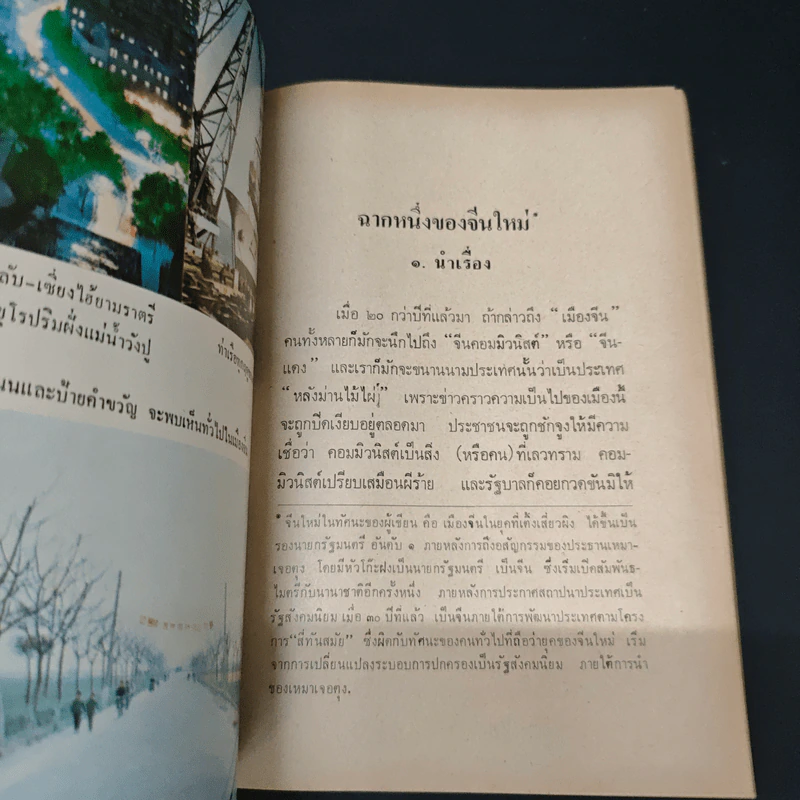 ลับ-เซี่ยงไฮ้ยามราตรี
ยุโรปริมฝั่งแม่น้ำวังปู
นนและป้ายคำขวัญ จะพบเห็นทั่วไปในเมืองจีน
ฉากหนึ่งของจีนใหม่*
๑. นำเรื่อง
เมื่อ ๒๐ กว่าปีที่แล้วมา ถ้ากล่าวถึง “เมืองจีน”
คนทั้งหลายก็มักจะนึกไปถึง “จีนคอมมิวนิสต์” หรือ “จีน-
แดง” และเราก็มักจะขนานนามประเทศนั้นว่าเป็นประเทศ
“หลังม่านไม้ไผ่” เพราะข่าวคราวความเป็นไปของเมืองนี้
จะถูกปิดเงียบอยู่ตลอดมา ประชาชนจะถูกชักจูงให้มีความ
เชื่อว่า คอมมิวนิสต์เป็นสิ่ง (หรือคน) ที่เลวทราม คอม-
มิวนิสต์เปรียบเสมือนผีร้าย และรัฐบาลก็คอยกวดขันมิให้
*จีนใหม่ในทัศนะของผู้เขียน คือ เมืองจีนในยุคที่เติ้งเสี่ยวผิง ได้ขึ้นเป็น
รองนายกรัฐมนตรี อันดับ ๑ ภายหลังการถึงอสัญกรรมของประธานเหมา-
เจอตุง โดยมีหัวโก๊ะฝงเป็นนายกรัฐมนตรี เป็นจีน ซึ่งเริ่มเปิดสัมพันธ-
ไมตรีกับนานาชาติอีกครั้งหนึ่ง ภายหลังการประกาศสถาปนาประเทศเป็น
รัฐสังคมนิยม เมื่อ ๓๐ ปีที่แล้ว เป็นจีนภายใต้การพัฒนาประเทศตามโครง
การ“สี่ทันสมัย” ซึ่งผิดกับทัศนะของคนทั่วไปที่ถือว่ายุคของจีนใหม่ เริ่ม
จากการเปลี่ยนแปลงระบอบการปกครองเป็นรัฐสังคมนิยม ภายใต้การนำ
ของเหมาเจอตุง.